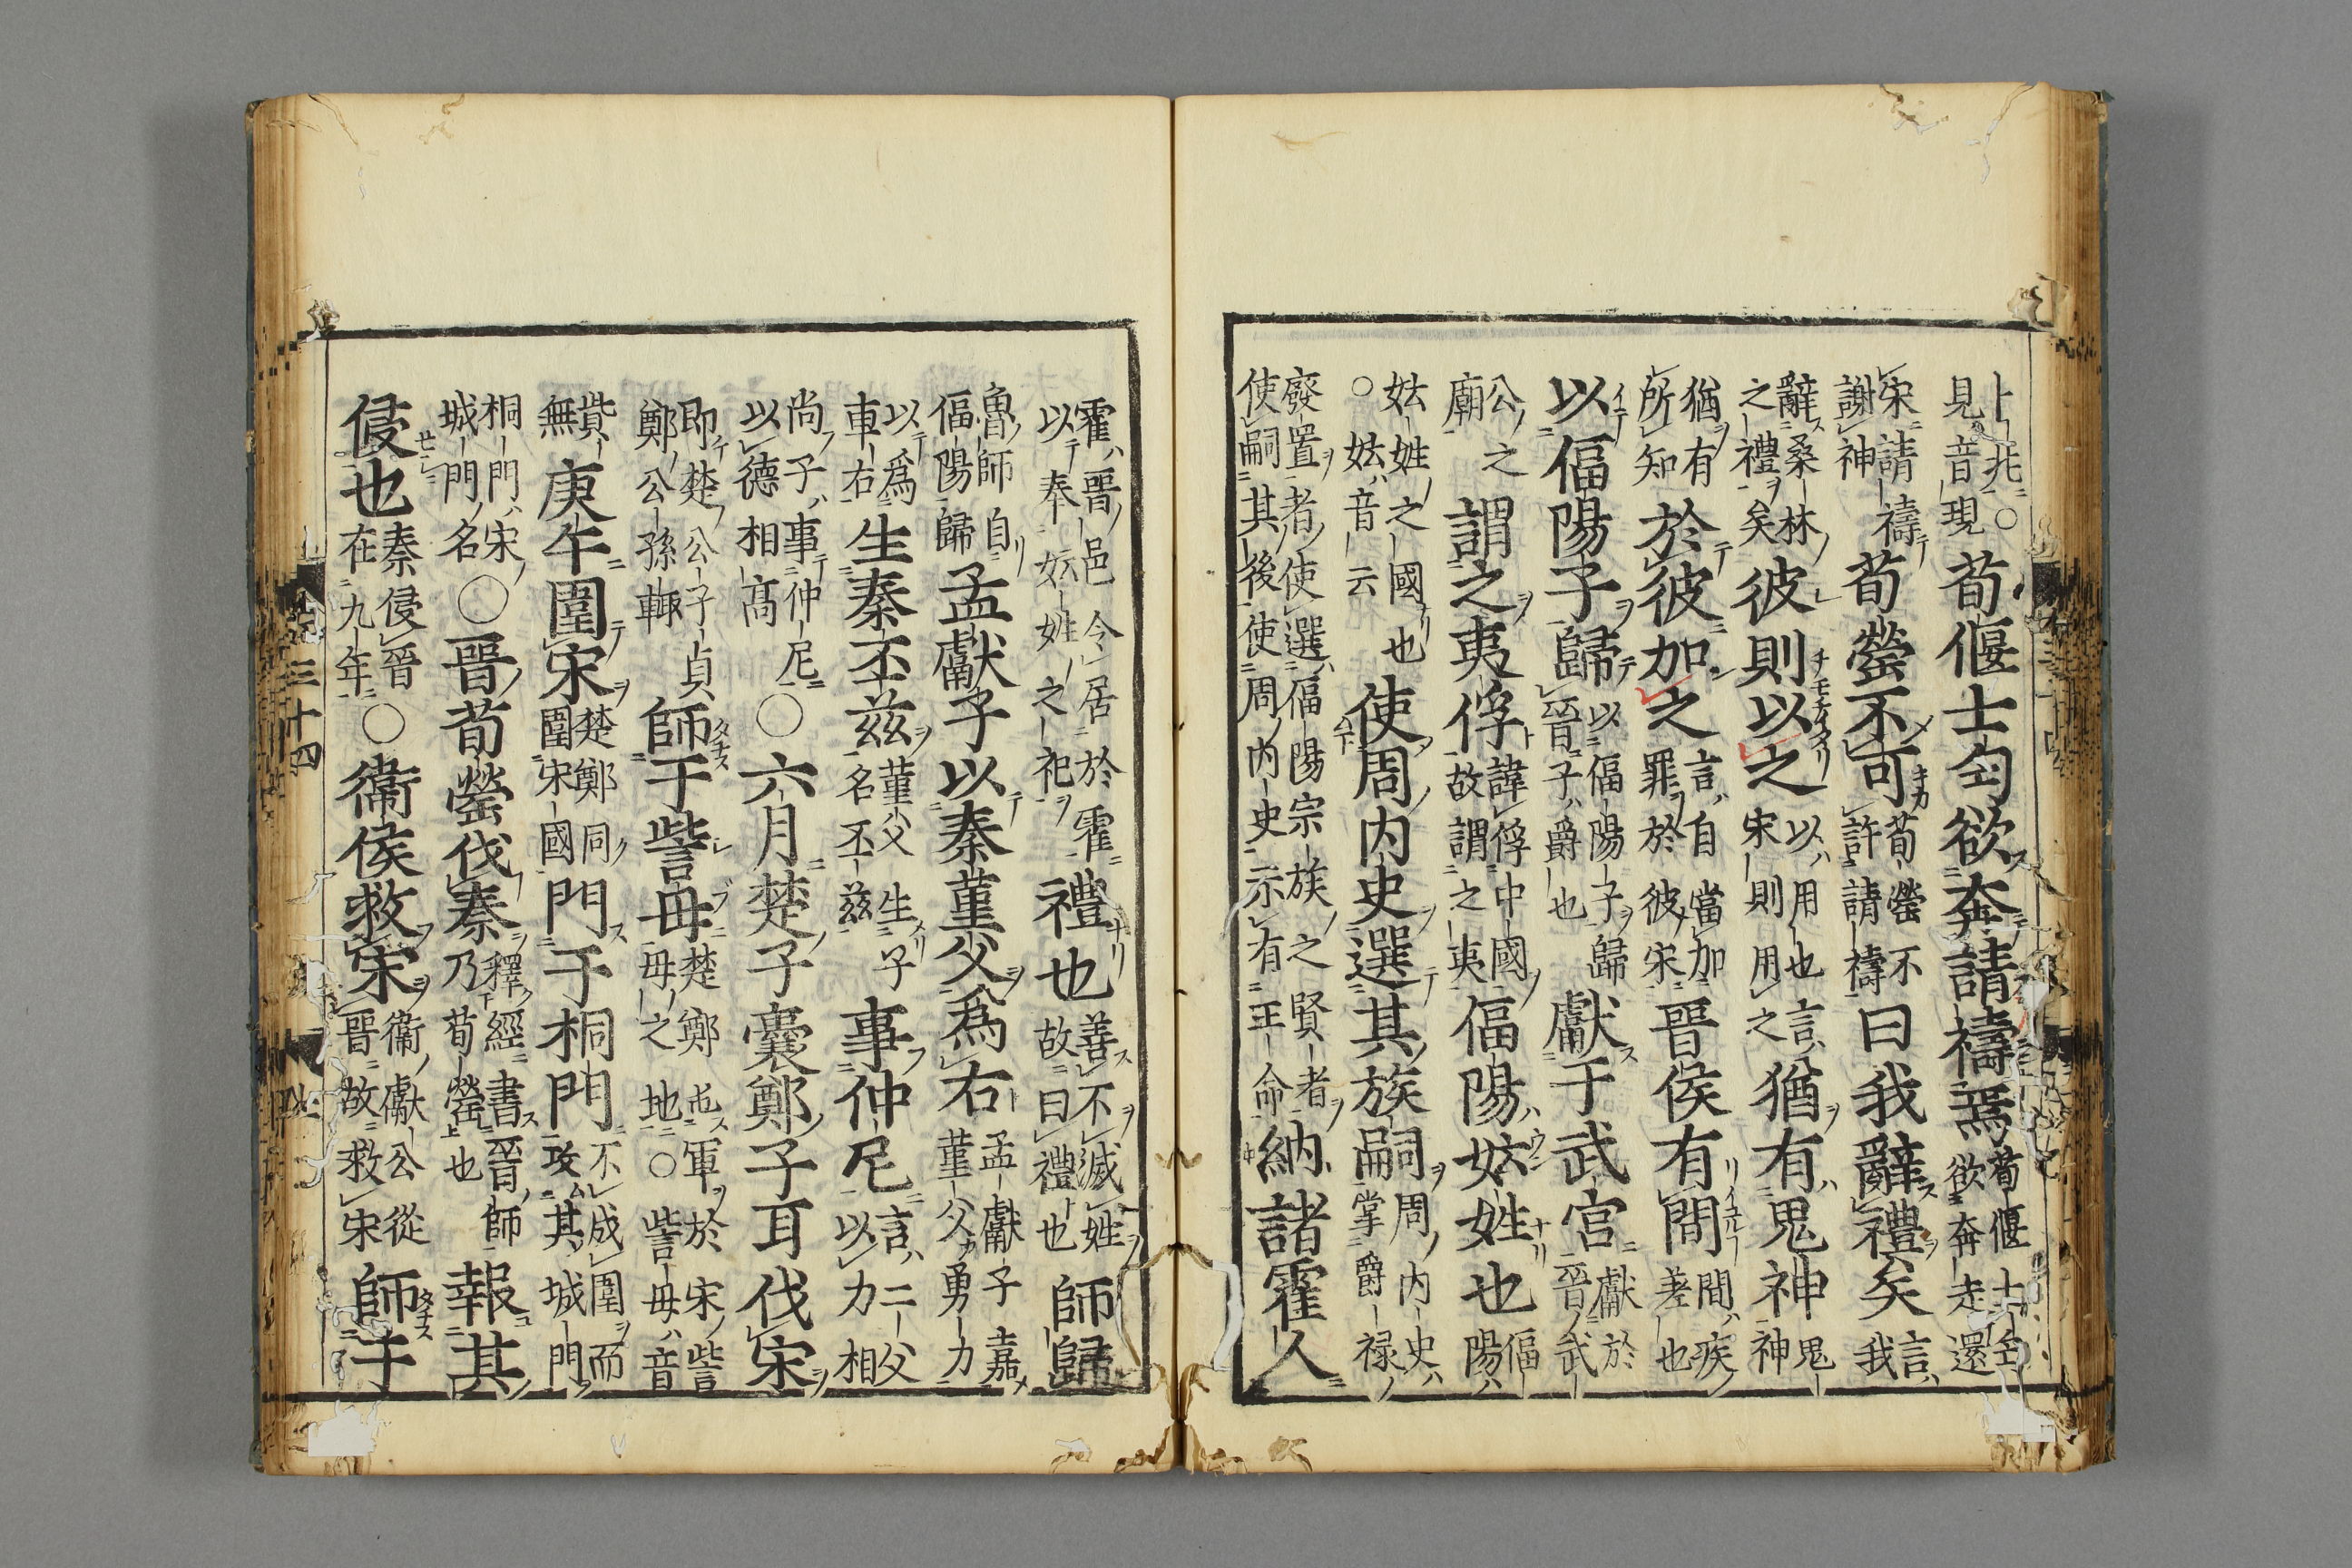 卜兆○見音現荀偃士匄欲奔請禱焉荀偃士匄欲奔走還
宋請禱謝神荀罃不可荀罃不許請禱曰我辭禮矣言我
辭桑林之禮矣彼則以之以用也言宋則用之猶有鬼神鬼神
猶有所知於彼加之言自當加罪於彼宋晉侯有間間疾差也
以偪陽子歸以偪陽子歸晉子爵也獻于武宮獻於晉武
公之廟謂之夷俘諱俘中國故謂之夷偪陽妘姓也偪陽
妘姓之國也○妘音云使周內史選其族嗣周內史掌爵祿
廢置者使選偪陽宗族之賢者使嗣其後使周內史示有王命納諸霍人
霍晉邑今居於霍以奉妘姓之祀禮也善不滅姓故曰禮也師歸
魯師自偪陽歸孟獻子以秦菫父爲右孟獻子嘉菫父勇力
以爲車右生秦丕茲菫父生子名丕茲事仲尼言二父以力相
尚子事仲尼以德相高○六月楚子囊鄭子耳伐宋
即楚公子貞鄭公孫輒師于訾毋楚鄭屯軍於宋訾毋之地○訾毋音
貲無庚午圍宋楚鄭同圍宋國門于桐門不成圍而攻其城門
桐門宋城門名○晉荀罃伐秦釋經書晉師乃荀罃也報其
侵也秦侵晉在九年○衞侯救宋衞獻公從晉故救宋師于
三十四